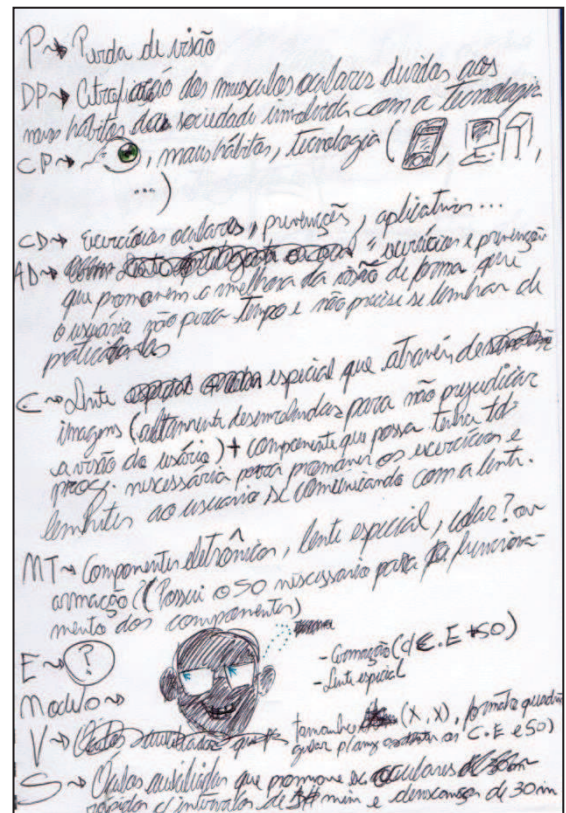 P → Perda de visão
DP → Atrofiação dos musculos oculares devidas aos
maus hábitos da sociedade envolvida com a tecnologia
CP → , maus hábitos, tecnologia ( , ,
...)
CD → Exercícios oculares, prevenções, aplicativos...
AD → exercícios e prevenção
que promovem a melhora da visão de forma que
o usuário não perca tempo e não precise se lembrar de
C → Lente especial que através de
imagens (altamente desenvolvidas para não prejudicar
a visão do usário) + componente que possa tenha td
proc. nescessária para promover os exercícios e
lembretes ao usuario se comunicando com a lente.
MT → Componentes eletrônicos, lente especial, colar? ou
armação ((Possui o SO nescessario para funciona-
mento dos componentes)
E → ?
- Armação (c/ C.E + SO)
- Lente especial
Modelo →
V → tamanho (X, X), formato quadran
gular p/ os C.E e SO)
S → Óculos auxiliador que promove ex oculares
rápidos c/ intervalos de min e descansos de 30 min